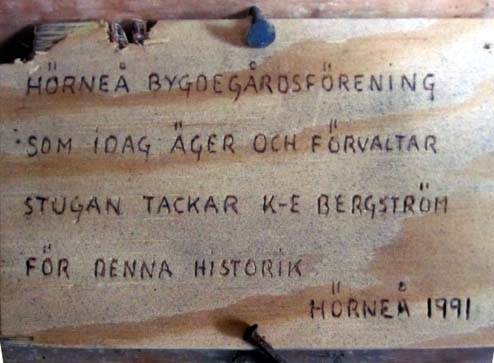 HÖRNEÅ BYGDEGÅRDSFÖRENING
SOM IDAG ÄGER OCH FÖRVALTAR
STUGAN TACKAR K-E BERGSTRÖM
FÖR DENNA HISTORIK
HÖRNEÅ 1991